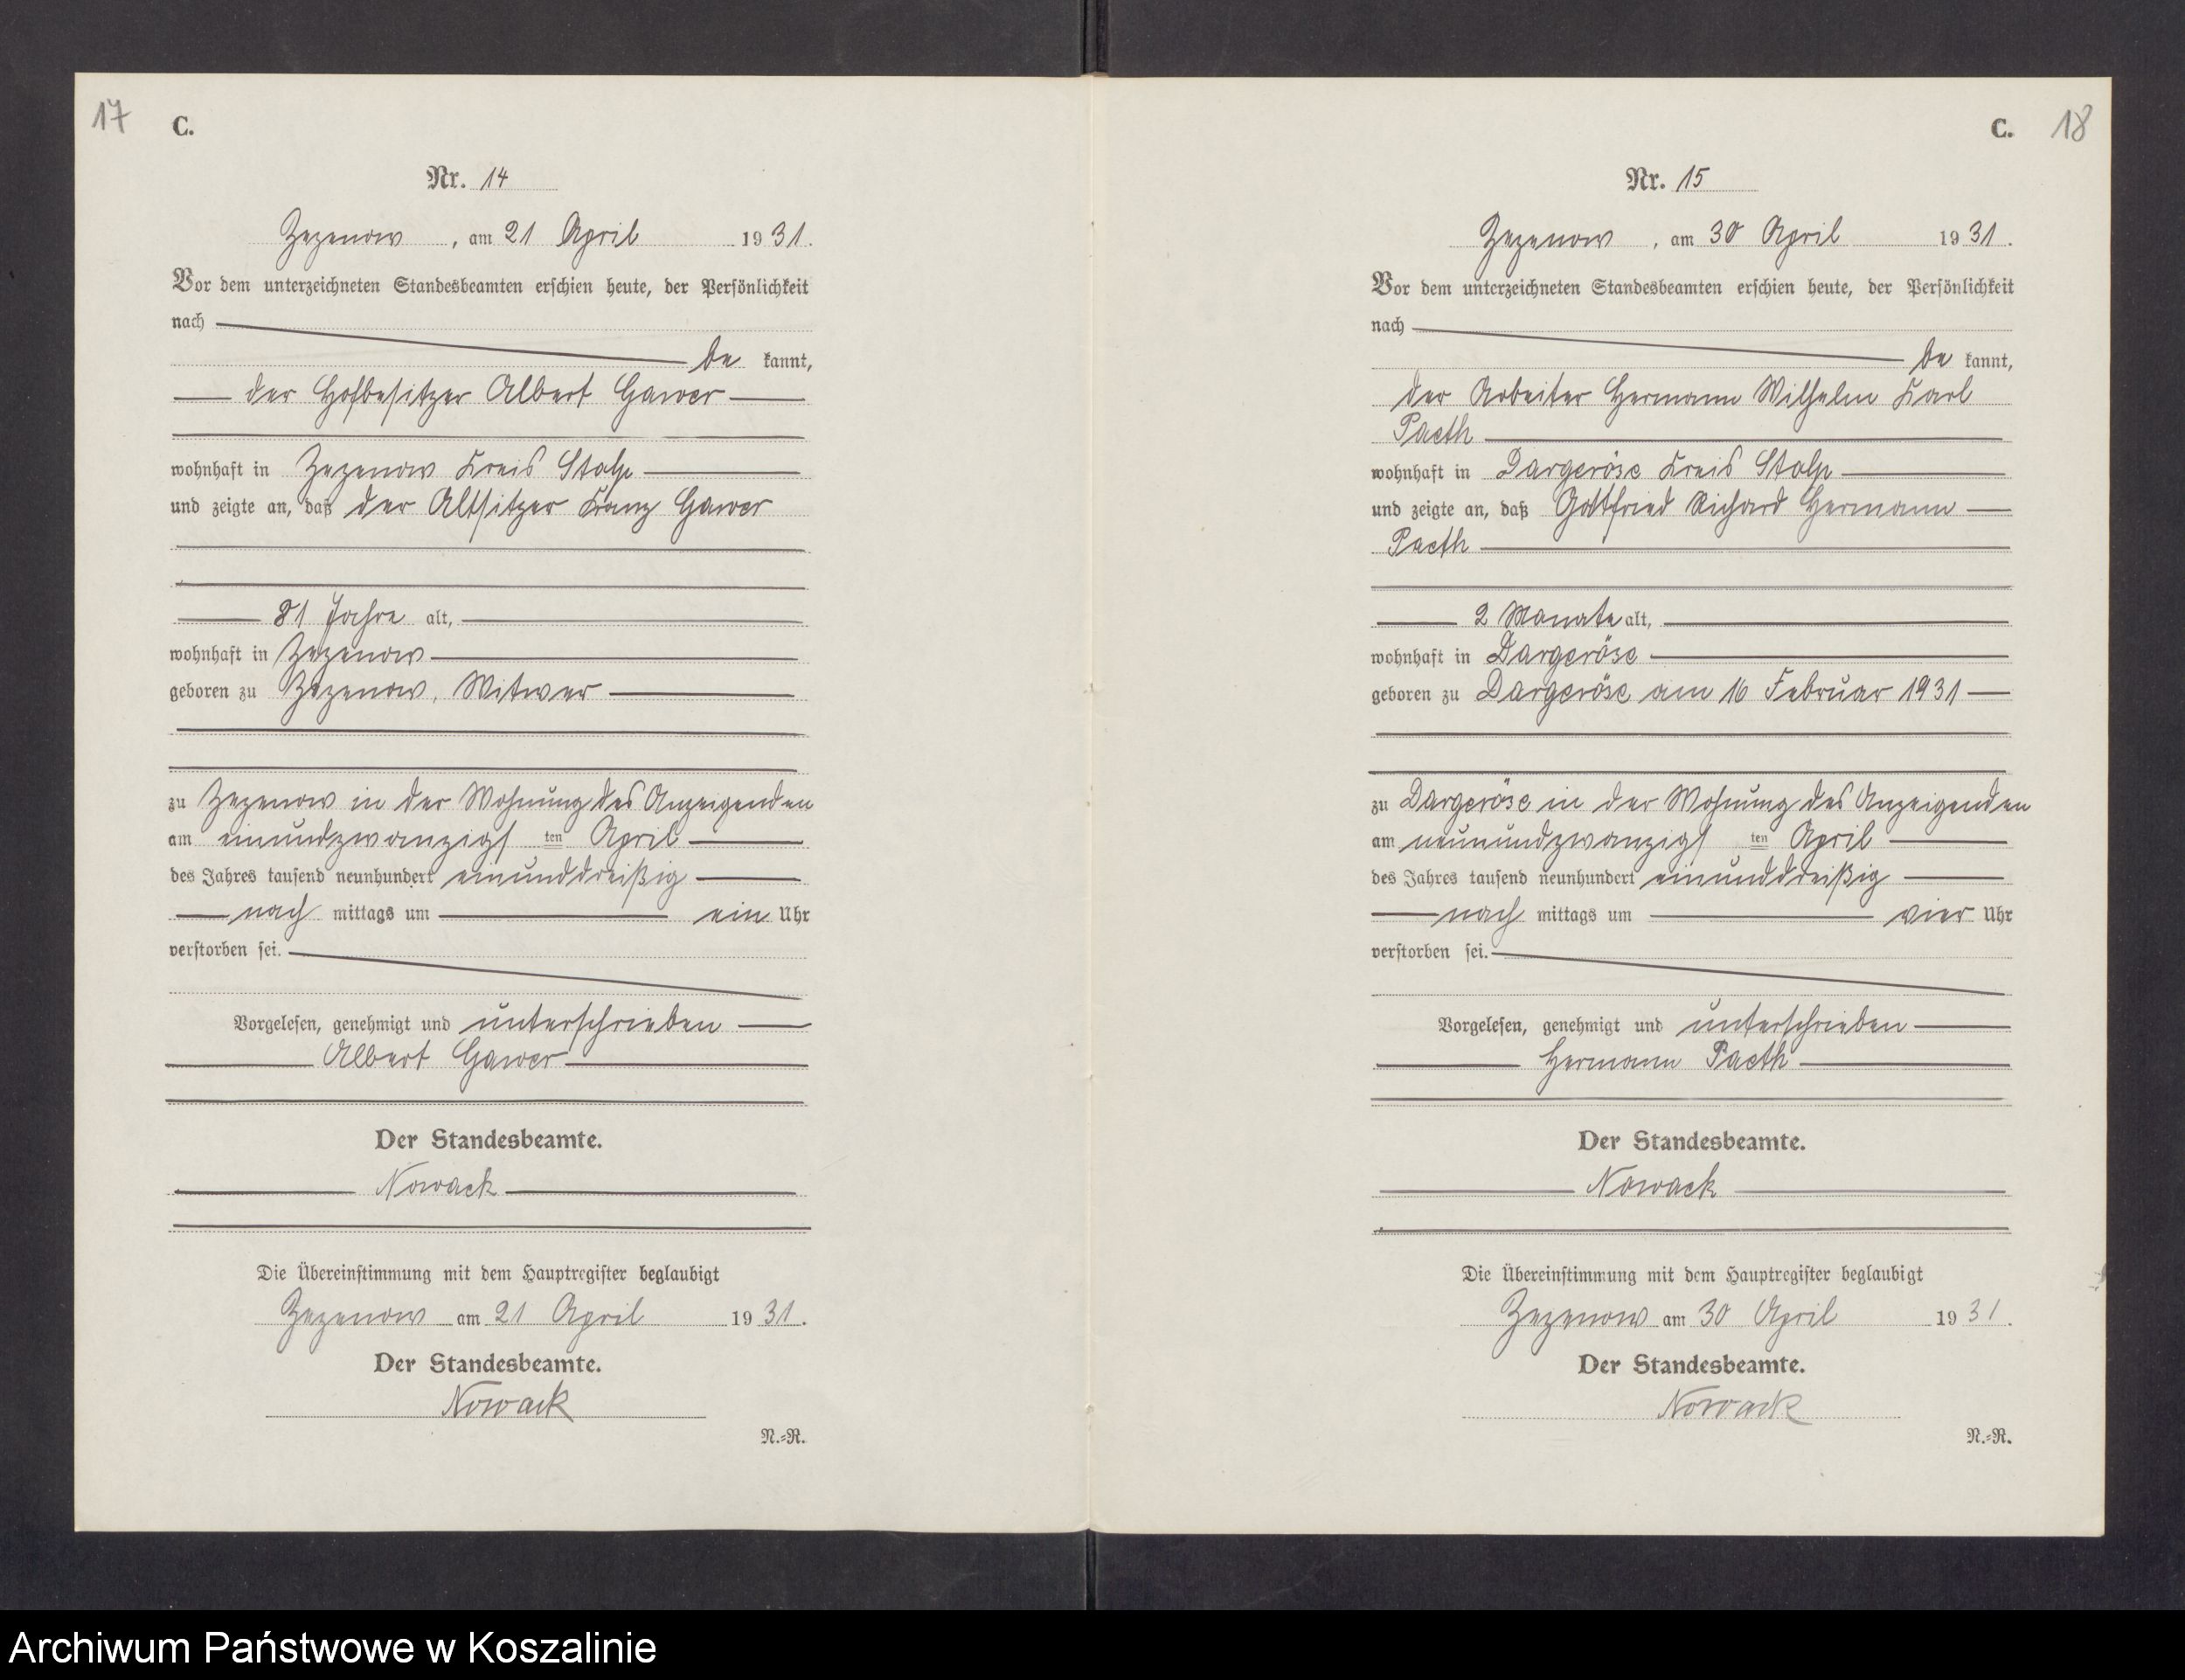 17
C.
Nr. 14
Zezenow, am 21 April 1931.
Vor dem unterzeichneten Standesbeamten erschien heute, der Persönlichkeit
nach
be kannt,
der Hofbesitzer Albert Gawer
wohnhaft in Zezenow Kreis Stolp
und zeigte an, daß der Altsitzer Franz Gawer
81 Jahre alt,
wohnhaft in Zezenow
geboren zu Zezenow, Witwer
zu Zezenow in der Wohnung des Anzeigenden
am einundzwanzigsten April
des Jahres tausend neunhundert einunddreißig
nach mittags um ein Uhr
verstorben sei.
Vorgelesen, genehmigt und unterschrieben
Albert Gawer
Der Standesbeamte.
Nowack
Die Übereinstimmung mit dem Hauptregister beglaubigt
Zezenow am 21 April 1931.
Der Standesbeamte.
Nowack
N.=R.
C.
18
Nr. 15
Zezenow, am 30 April 1931.
Vor dem unterzeichneten Standesbeamten erschien heute, der Persönlichkeit
nach
be kannt,
der Arbeiter Hermann Wilhelm Karl
Paeth
wohnhaft in Dargeröse Kreis Stolp
und zeigte an, daß Gottfried Richard Hermann
Paeth
2 Monate alt,
wohnhaft in Dargeröse
geboren zu Dargeröse am 16 Februar 1931
zu Dargeröse in der Wohnung des Anzeigenden
am neunundzwanzigsten April
des Jahres tausend neunhundert einunddreißig
nach mittags um vier Uhr
verstorben sei.
Vorgelesen, genehmigt und unterschrieben
Hermann Paeth
Der Standesbeamte.
Nowack
Die Übereinstimmung mit dem Hauptregister beglaubigt
Zezenow am 30 April 1931.
Der Standesbeamte.
Nowack
N.=R.
Archiwum Państwowe w Koszalinie